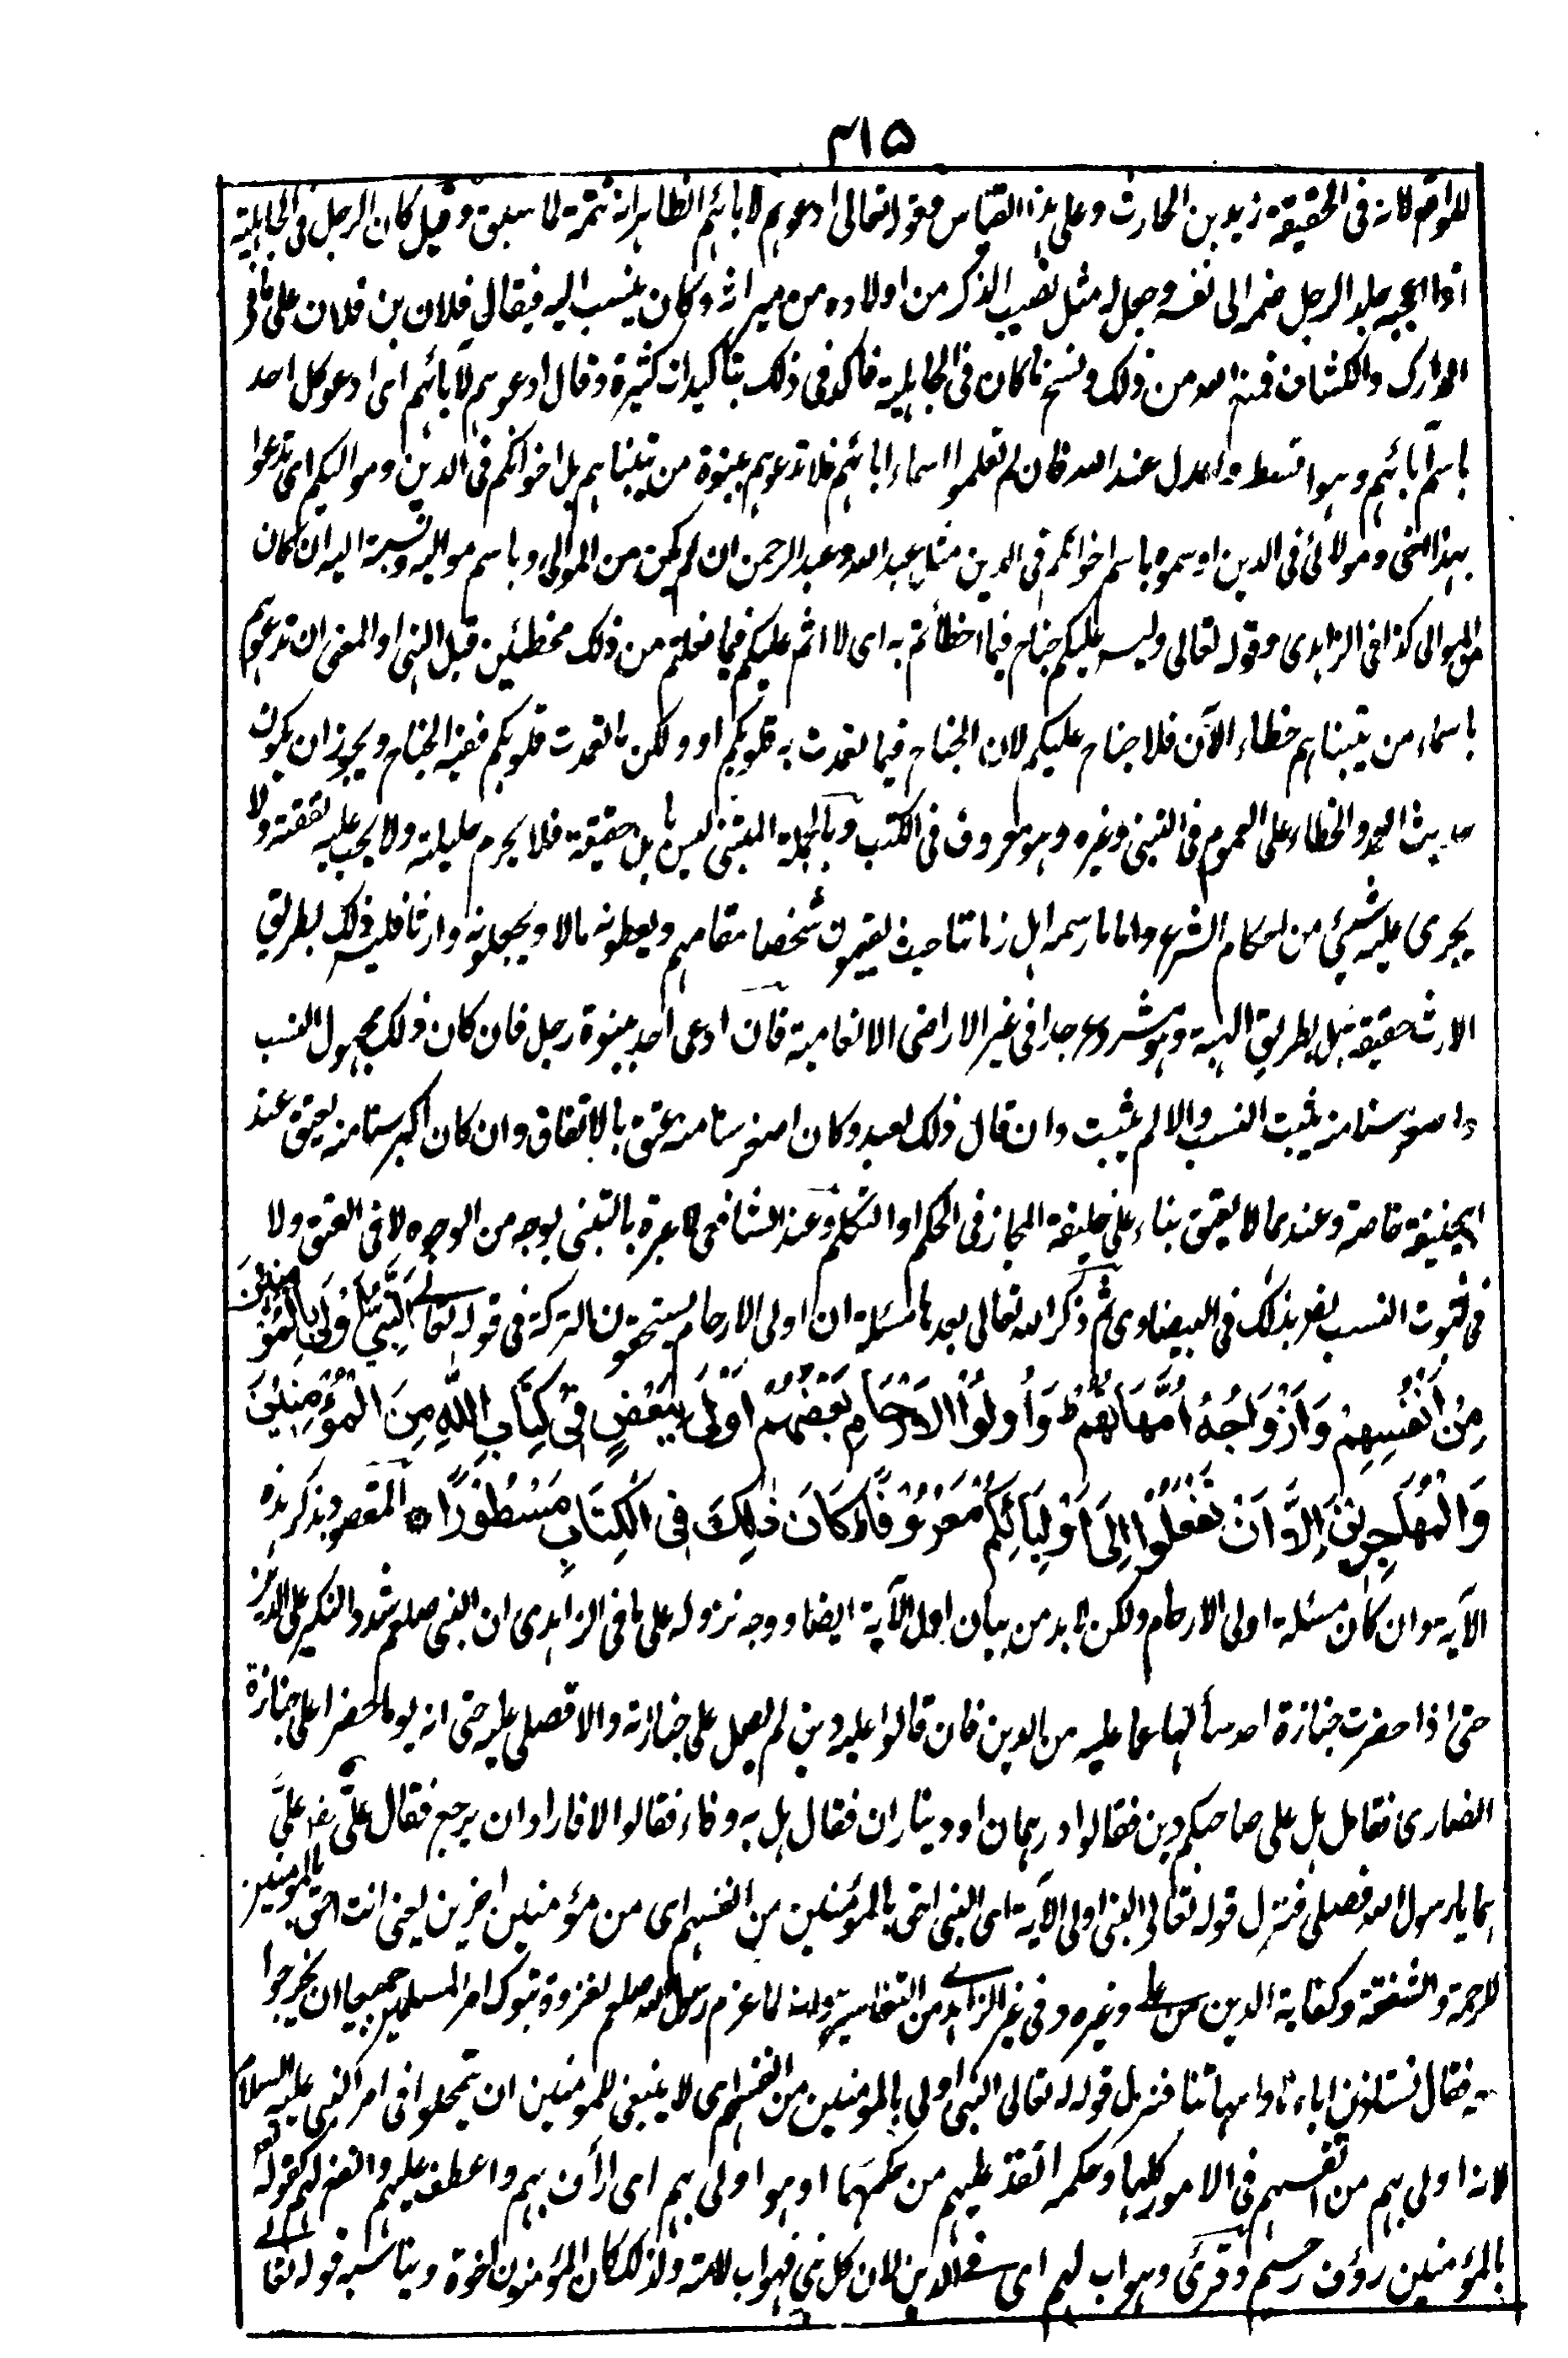 ۴۱۵
للواقع لانه فی الحقیقة زید بن الحارث وعلی هذا القیاس فقوله تعالی ادعوهم لابائهم الظاهر انه تتمة لما سبق وقیل کان الرجل فی الجاهلیة
اذا اعجبه جلد الرجل ضمه الی نفسه وجعل له مثل نصیب الذکر من اولاده من میراثه وکان ینسب الیه فیقال فلان بن فلان علی ما فی
المدارک والکشاف فمنع الله من ذلک ونسخ ما کان فی الجاهلیة فاکد فی ذلک بتاکیدات کثیرة وقال ادعوهم لآبائهم ای ادعو کل احد
باسم آبائهم وهو اقسط واعدل عند الله فان لم تعلموا اسماء ابائهم فلا تدعوهم ببنوة من تبناهم بل اخوانکم فی الدین وموالیکم ای تدعوا
بهذا اخی ومولائی فی الدین او سموه باسم اخوانکم فی الدین مثل عبد الله وعبد الرحمن ان لم یکن من الموالی وباسم موالیه ونسبة الیه ان کان
من الموالی کذا فی الزاهدی وقوله تعالی ولیس علیکم جناح فیما اخطأتم به ای لا اثم علیکم فیما فعلتم من ذلک مخطئین قبل النهی او المعنی ان تدعوهم
باسماء من تبناهم خطاء الآن فلا جناح علیکم لان الجناح فیما تعمدت به قلوبکم او ولکن ما تعمدت قلوبکم ففیه الجناح ویجوز ان یکون
حدیث العمد والخطاء علی العموم فی التبنی وغیره وهو معروف فی الکتب وبالجملة المتبنی لیس بابن حقیقة فلا یحرم حلیلته ولا یجب علیه نفقته ولا
یجری علیه شیئ من احکام الشرع واما ما رسمه اهل زماننا حیث یقیمون شخصا مقامهم ویعطونه مالا ویجعلونه وارثا فلیس ذلک بطریق
الارث حقیقة بل بطریق الهبة وهو مشروع جدا فی غیر الاراضی الانعامیة فان ادعی احد ببنوة رجل فان کان ذلک مجهول النسب
واصغر سنا منه یثبت النسب والا لم یثبت وان قال ذلک لعبد وکان اصغر سنا منه عتق بالاتفاق وان کان اکبر سنا منه یعتق عند
ابیحنیفة خاصة وعندهما لا یعتق بناء علی خلیفة المجاز فی الحکم او التکلم وعند الشافعی لا عبرة بالتبنی بوجه من الوجوه لا فی العتق ولا
فی ثبوت النسب نص بذلک فی البیضاوی ثم ذکر الله تعالی بعدها مسئلة ان اولی الارحام یستحقون الترکة فی قوله تعالی اَلنَّبِيُّ اَوْلٰى بِالْمُؤْمِنِيْنَ
مِنْ اَنْفُسِهِمْ وَاَزْوَاجُهٗ اُمَّهَاتُهُمْ ؕ وَاُولُوا الْاَرْحَامِ بَعْضُهُمْ اَوْلٰى بِبَعْضٍ فِیْ کِتَابِ اللّٰهِ مِنَ الْمُؤْمِنِيْنَ
وَالْمُهَاجِرِيْنَ اِلَّا اَنْ تَفْعَلُوْا اِلٰى اَوْلِيَائِكُمْ مَعْرُوْفًا ؕ كَانَ ذٰلِكَ فِی الْكِتَابِ مَسْطُوْرًا ۞ المقصود بذکر هذه
الآیة وان کان مسئلة اولی الارحام ولکن لا بد من بیان اول الآیة ایضا ووجه نزوله علی ما فی الزاهدی ان النبی صلعم شدد النکیر علی الدین
حتی اذا حضرت جنازة احد سألها عما علیه من الدین فان قالوا علیه دین لم یصل علی جنازته والا فصلی علیه حتی انه یوما حضر علی جنازة
انصاری فقال هل علی صاحبکم دین فقالوا درهمان او دیناران فقال هل به وفاء فقالوا لا فاراد ان یرجع فقال علی رض علیَّ
هما یا رسول الله فصلی فنزل قوله تعالی النبی اولی الآیة ای النبی احق بالمؤمنین من انفسهم ای من مؤمنین اخرین یعنی انت احق بالمؤمنین
للرحمة والشفقة وکفایة الدین من علی وغیره وفی غیر الزاهدی من التفاسیر نزوله لما عزم رسول الله صلعم لغزوة تبوک امر المسلمین جمیعا ان یخرجوا
فیه فقال نستاذن اباءنا وامهاتنا فنزل قوله تعالی النبی اولی بالمؤمنین من انفسهم ای لا ینبغی للمؤمنین ان یتحلوا فی امر النبی علیه السلام
لانه اولی بهم من انفسهم فی الامور کلها وحکمه انفذ علیهم من حکمها او هو اولی بهم ای ارأف بهم واعطف علیهم وانفع لهم کقوله تعالی
بالمؤمنین رؤف رحیم وقرئ وهو اب لهم ای فی الدین لان کل نبی فهو اب لامته ولذلک کان المؤمنون اخوة ویناسبه قوله تعالی